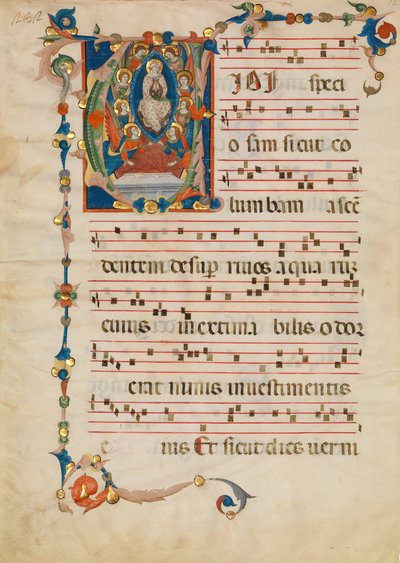 IDI speci
osam sicut co
lumbam ascē
dentem desup riuos aquaruz
cuius inextimabilis odor
erat nimis inuestimentis
eius Et sicut dies uerni